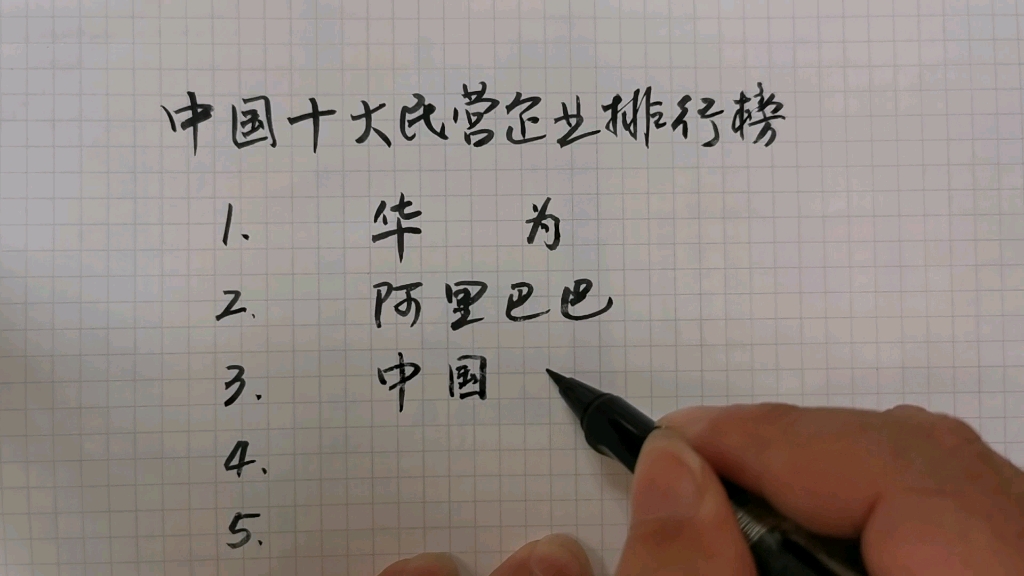 中国十大民营企业排行榜
1. 华为
2. 阿里巴巴
3. 中国
4.
5.